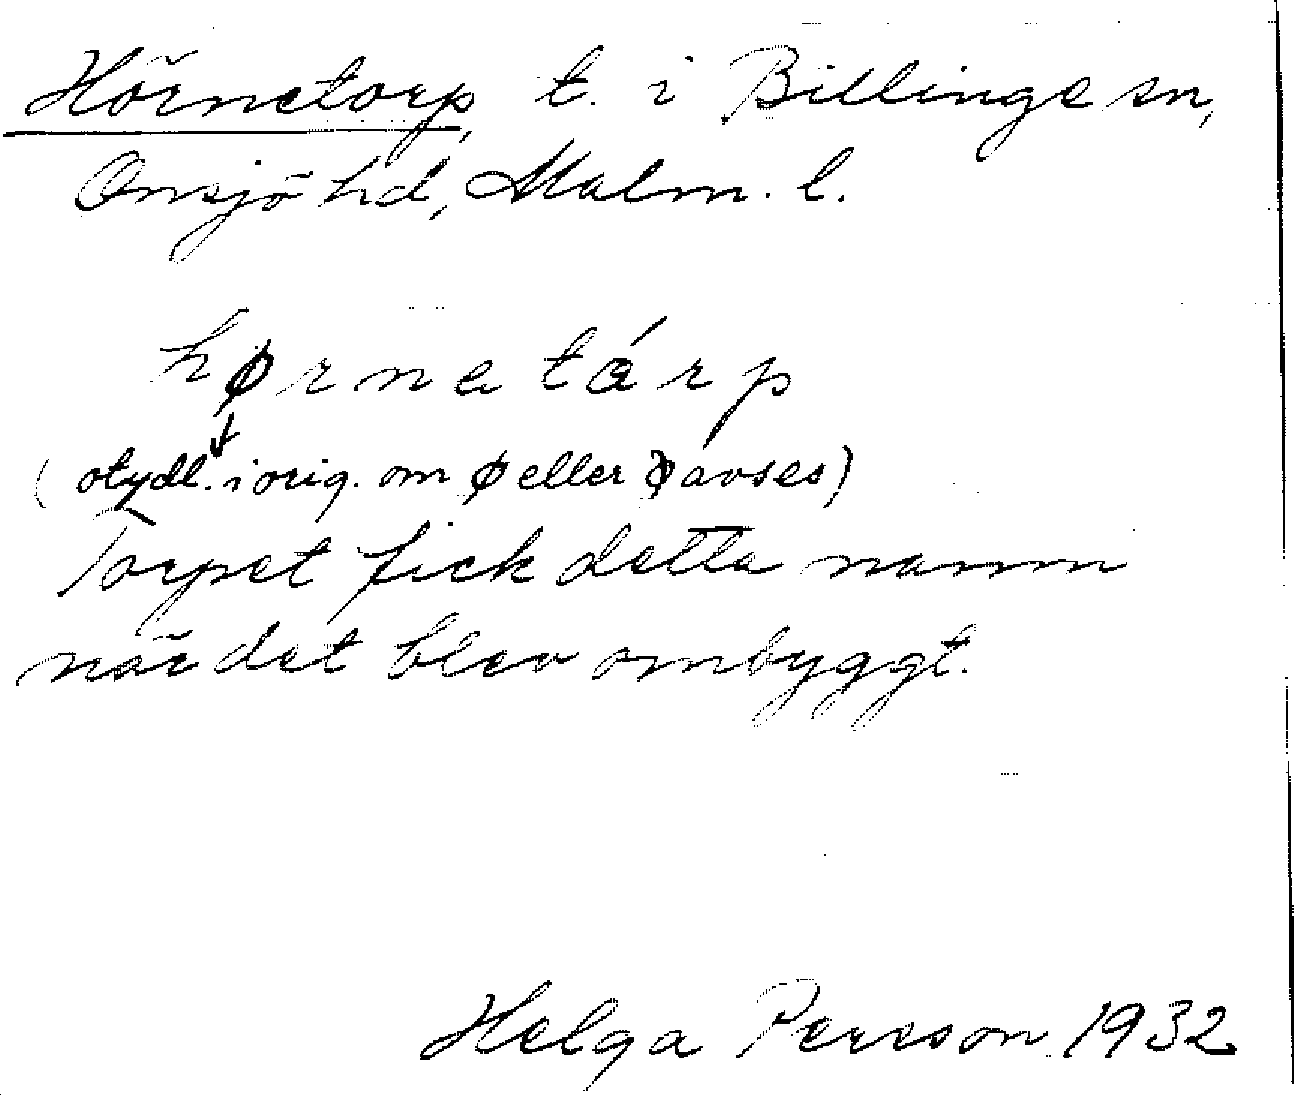 Hörnetorp, t. i Billinge sn,
Onsjö hd, Malm. l.
hørnatårp
(otydl. i orig. om ø eller avses)
Torpet fick detta namn
när det blev ombyggt.
Helga Persson 1932